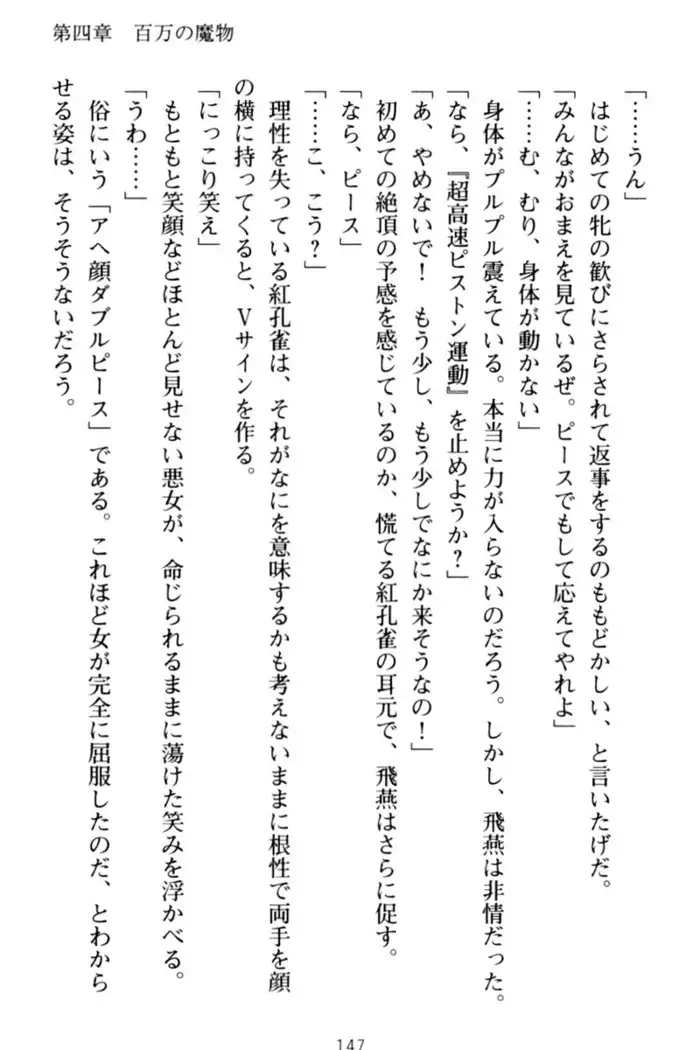 第四章　百万の魔物
「……うん」
はじめての牝の歓びにさらされて返事をするのももどかしい、と言いたげだ。
「みんながおまえを見ているぜ。ピースでもして応えてやれよ」
「……む、むり、身体が動かない」
身体がプルプル震えている。本当に力が入らないのだろう。しかし、飛燕は非情だった。
「なら、『超高速ピストン運動』を止めようか？」
「あ、やめないで！　もう少し、もう少しでなにか来そうなの！」
初めての絶頂の予感を感じているのか、慌てる紅孔雀の耳元で、飛燕はさらに促す。
「なら、ピース」
「……こ、こう？」
理性を失っている紅孔雀は、それがなにを意味するかも考えないままに根性で両手を顔
の横に持ってくると、Ｖサインを作る。
「にっこり笑え」
もともと笑顔などほとんど見せない悪女が、命じられるままに蕩けた笑みを浮かべる。
「うわ……」
俗にいう「アヘ顔ダブルピース」である。これほど女が完全に屈服したのだ、とわから
せる姿は、そうそうないだろう。
147